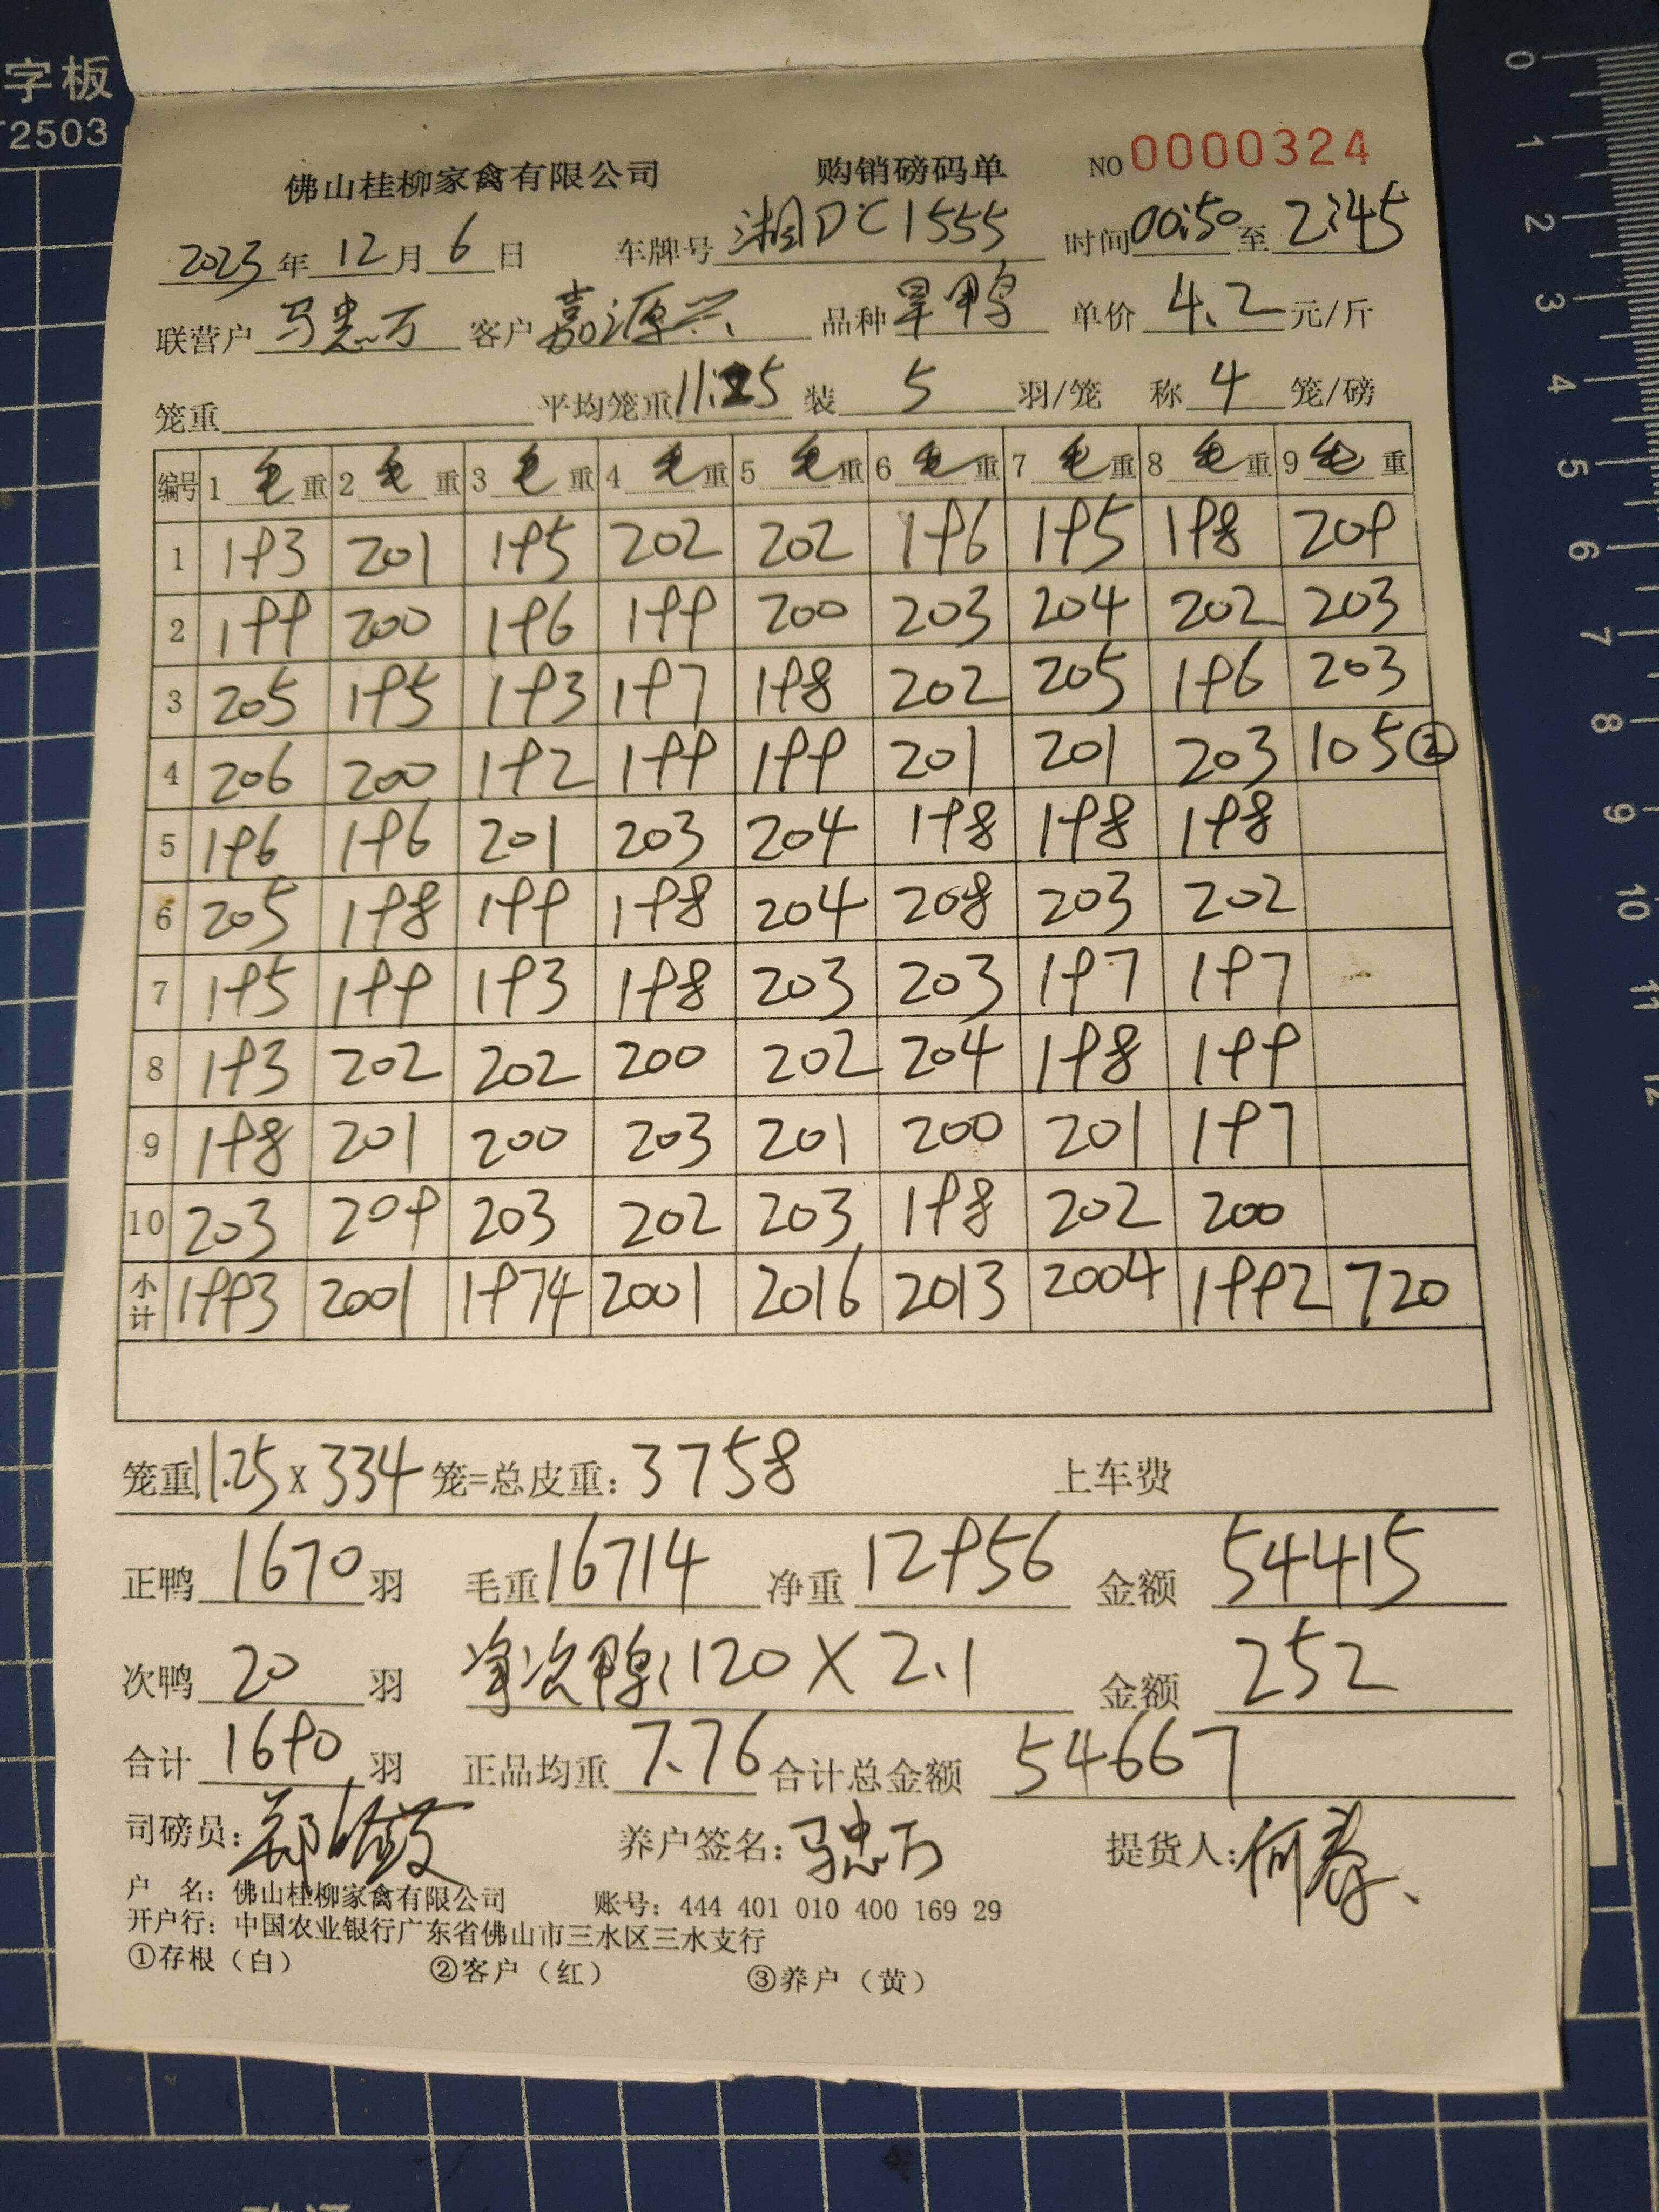 字板
T2503
佛山桂柳家禽有限公司 购销磅码单 NO 0000324
2023年12月6日 车牌号 湘DC1555 时间 00:50 至 2:45
联营户 马忠万 客户 嘉源兴 品种 旱鸭 单价 4.2 元/斤
笼重 平均笼重 11.25 装 5 羽/笼 称 4 笼/磅
编号 1 毛重 2 毛重 3 毛重 4 毛重 5 毛重 6 毛重 7 毛重 8 毛重 9 毛重
1 193 201 195 202 202 196 195 198 209
2 199 200 196 199 200 203 204 202 203
3 205 195 193 197 198 202 205 196 203
4 206 200 192 199 199 201 201 203 105②
5 196 196 201 203 204 198 198 198
6 205 198 199 198 204 208 203 202
7 195 199 193 198 203 203 197 197
8 193 202 202 200 202 204 198 199
9 198 201 200 203 201 200 201 197
10 203 209 203 202 203 198 202 200
小计 1993 2001 1974 2001 2016 2013 2004 1992 720
笼重 11.25 x 334 笼=总皮重: 3758 上车费
正鸭 1670 羽 毛重 16714 净重 12956 金额 54415
次鸭 20 羽 净次鸭: 120 X 2.1 金额 252
合计 1690 羽 正品均重 7.76 合计总金额 54667
司磅员: 养户签名: 马忠万 提货人:
户 名: 佛山桂柳家禽有限公司 账号: 444 401 010 400 169 29
开户行: 中国农业银行广东省佛山市三水区三水支行
①存根（白） ②客户（红） ③养户（黄）
0 1 2 3 4 5 6 7 8 9 10 11 12